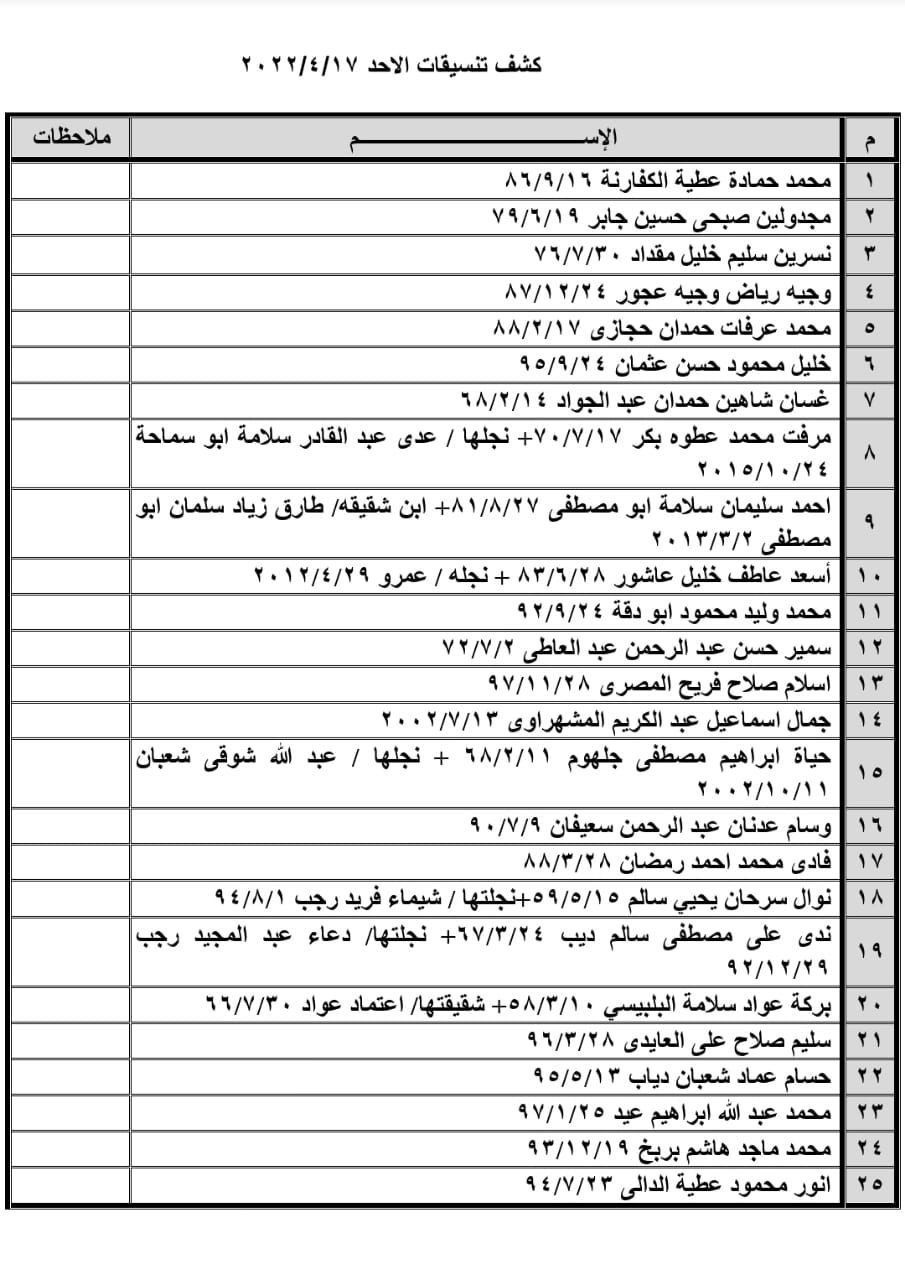 كشف تنسيقات الاحد ٢٠٢٢/٤/١٧
م الإســـــــــم ملاحظات
١ محمد حمادة عطية الكفارنة ٨٦/٩/١٦
٢ مجدولين صبحى حسين جابر ٧٩/٦/١٩
٣ نسرين سليم خليل مقداد ٧٦/٧/٣٠
٤ وجيه رياض وجيه عجور ٨٧/١٢/٢٤
٥ محمد عرفات حمدان حجازى ٨٨/٢/١٧
٦ خليل محمود حسن عثمان ٩٥/٩/٢٤
٧ غسان شاهين حمدان عبد الجواد ٦٨/٢/١٤
٨ مرفت محمد عطوه بكر ٧٠/٧/١٧+ نجلها / عدى عبد القادر سلامة ابو سماحة
٢٠١٥/١٠/٢٤
٩ احمد سليمان سلامة ابو مصطفى ٨١/٨/٢٧+ ابن شقيقه/ طارق زياد سلمان ابو
مصطفى ٢٠١٣/٣/٢
١٠ أسعد عاطف خليل عاشور ٨٣/٦/٢٨ + نجله / عمرو ٢٠١٢/٤/٢٩
١١ محمد وليد محمود ابو دقة ٩٢/٩/٢٤
١٢ سمير حسن عبد الرحمن عبد العاطى ٧٢/٧/٢
١٣ اسلام صلاح فريح المصرى ٩٧/١١/٢٨
١٤ جمال اسماعيل عبد الكريم المشهراوى ٢٠٠٢/٧/١٣
١٥ حياة ابراهيم مصطفى جلهوم ٦٨/٢/١١ + نجلها / عبد الله شوقى شعبان
٢٠٠٢/١٠/١١
١٦ وسام عدنان عبد الرحمن سعيفان ٩٠/٧/٩
١٧ فادى محمد احمد رمضان ٨٨/٣/٢٨
١٨ نوال سرحان يحيي سالم ٥٩/٥/١٥+نجلتها / شيماء فريد رجب ٩٤/٨/١
١٩ ندى على مصطفى سالم ديب ٦٧/٣/٢٤+ نجلتها/ دعاء عبد المجيد رجب
٩٢/١٢/٢٩
٢٠ بركة عواد سلامة البلبيسي ٥٨/٣/١٠+ شقيقتها/ اعتماد عواد ٦٦/٧/٣٠
٢١ سليم صلاح على العايدى ٩٦/٣/٢٨
٢٢ حسام عماد شعبان دياب ٩٥/٥/١٣
٢٣ محمد عبد الله ابراهيم عيد ٩٧/١/٢٥
٢٤ محمد ماجد هاشم بربخ ٩٣/١٢/١٩
٢٥ انور محمود عطية الدالى ٩٤/٧/٢٣